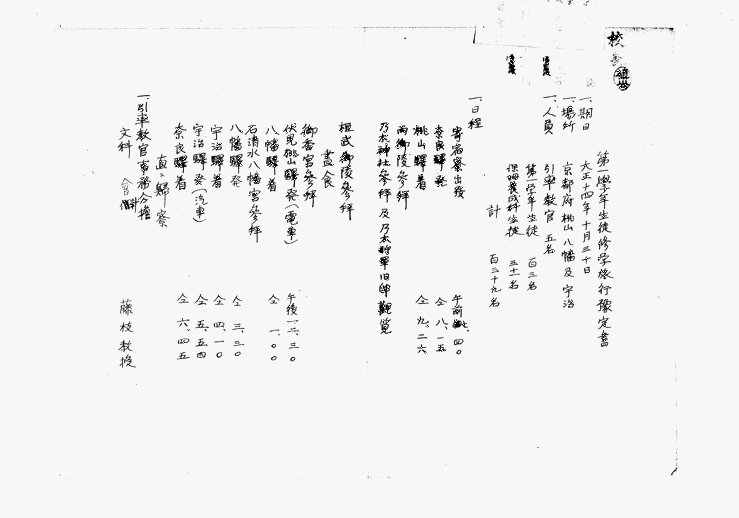 第一學年生徒修学旅行豫定書
一、期日 大正十四年十月三十日
一、場所 京都府桃山八幡及宇治
一、人員 引率教官 五名
第一学年生徒 百三名
保姆養成科生徒 三十一名
計 百三十九名
一、日程
寄宿寮出發 午前 四〇
奈良驛発 仝 八、一五
桃山驛着 仝 九、二六
両御陵参拝
乃木神社参拝及乃木将軍旧邸觀覧
桓武御陵参拝
晝食
御香宮参拝
伏見桃山驛発(電車) 午後一二、三〇
八幡驛着 仝 一、〇〇
石清水八幡宮参拝
八幡驛発 仝 三、三〇
宇治驛着 仝 四、一〇
宇治驛発(汽車) 仝 五、五四
奈良驛着 仝 六、四五
直ニ歸寮
一、引率教官事務分擔
文科 會計 藤枝教授